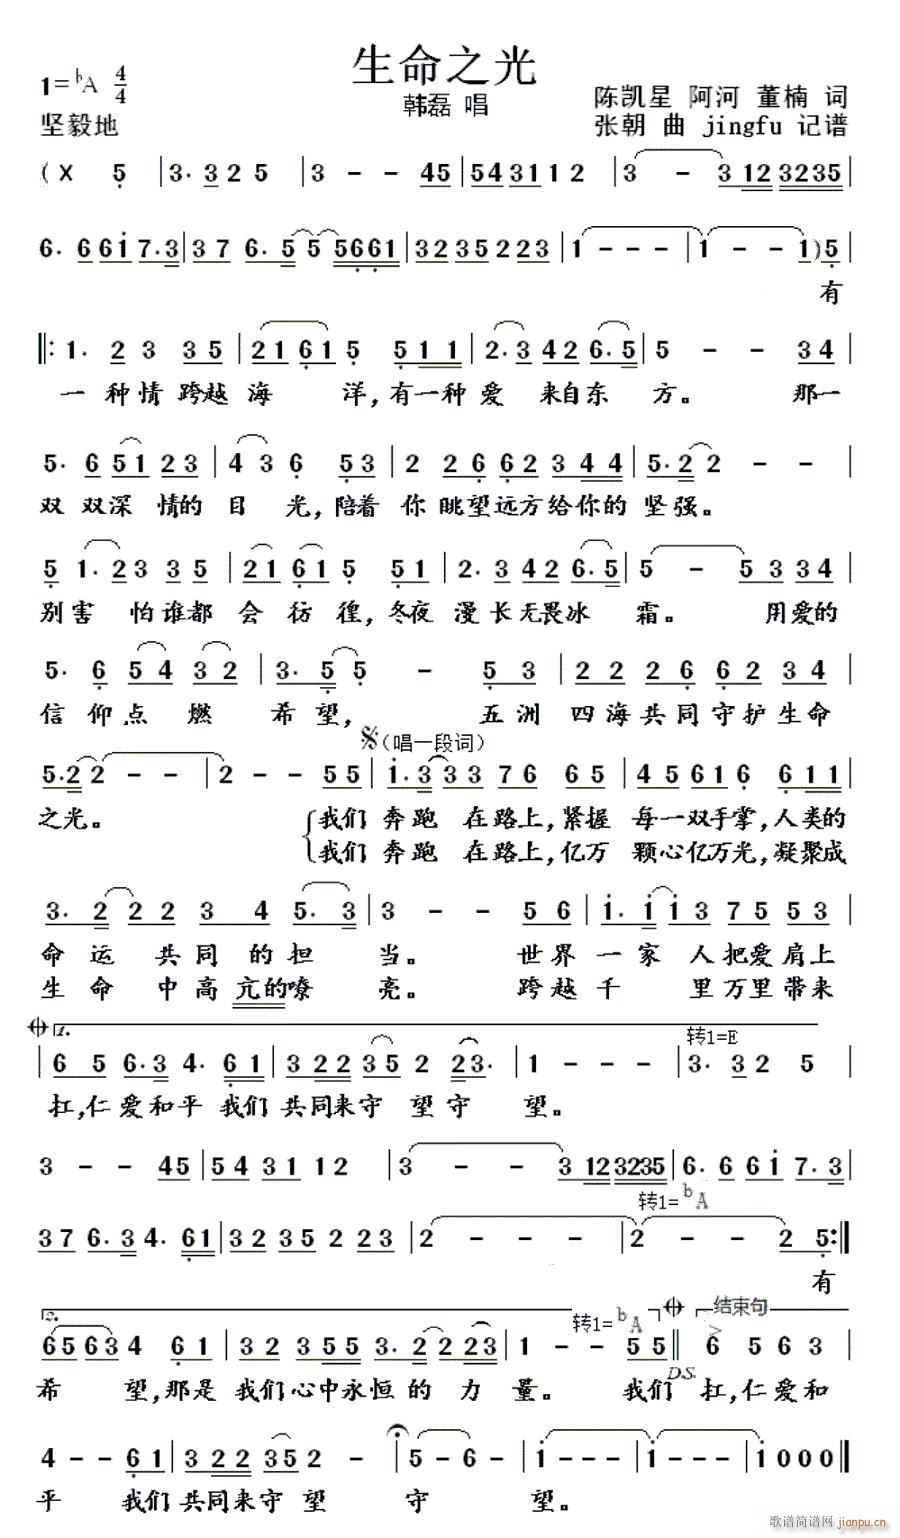 生命之光
1=♭A 4/4
韩磊 唱
陈凯星 阿河 董楠 词
坚毅地
张朝 曲 jingfu 记谱
( X 5 | 3. 3 2 5 | 3 - - 45 | 54 31 1 2 | 3 - 3 12 3235 |
6. 6 61 7.3 | 3 7 6. 5 5 5661 | 32 35 2 23 | 1 - - - | 1 - - 1) 5 |
有
‖: 1. 2 3 35 | 21 61 5 5 11 | 2.3 42 6.5 | 5 - - 34 |
一种情跨越海 洋,有一种爱 来自东 方。 那一
5. 6 51 23 | 4 3 6 53 | 2 26 62 3 44 | 5.2 2 - - |
双 双深 情的 目 光,陪着 你 眺望远方给你的 坚强。
5 1.2 3 3 5 | 21 61 5 51 | 2.3 42 6.5 | 5 - 5 3 34 |
别害 怕谁都 会 彷 徨,冬夜 漫长无畏冰 霜。 用爱的
5. 6 54 32 | 3. 5 5 - 5 3 | 2 2 2 6 6 2 3 4 |
信 仰点 燃 希 望, 五洲 四海共同守护生命
𝄋(唱一段词)
5.2 2 - - | 2 - - 55 | 1.3 3 3 76 65 | 45 61 6 6 11 |
之光。 我们 奔跑 在路上,紧握 每一双手掌,人类的
我们 奔跑 在路上,亿万 颗心亿万光,凝聚成
3. 2 2 2 3 4 5. 3 | 3 - - 5 6 | 1. 1 1 3 7 5 5 3 |
命 运 共同 的 担 当。 世界 一 家 人把爱肩上
生 命 中高 亢的嘹 亮。 跨越 千 里万里带来
1. 转1=E
| 6 5 6.3 4. 61 | 3 22 35 2 23. | 1 - - - | 3. 3 2 5 |
扛,仁爱和平 我们 共同来守 望守 望。
3 - - 45 | 54 31 1 2 | 3 - - 3 12 3235 | 6. 6 61 7. 3 |
转1=♭A
37 6.3 4. 61 | 32 35 2 23 | 2 - - - | 2 - - 2 5 :‖
有
2. 转1=♭A 结束句
65 63 4 61 | 32 3 55 3. 2 2 23 | 1 - - 55 ‖ 6 5 6 3 |
D.S.
希 望,那是 我们心中永恒的 力 量。 我们 扛,仁爱和
4 - - 61 | 3 22 35 2 - | 5 - 6 - | 1 - - - | 1 - - - | 1 0 0 0 ‖
平 我们共同来守 望 守 望。
歌谱简谱网
jianpu.cn